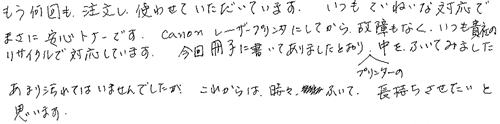 もう何回も、注文し使わせていただいています。 いつもていねいな対応で
まさに安心トナーです。 Canon レーザープリンタにしてから、故障もなく、いつも貴社の
リサイクルで対応しています。 今回冊子に書いてありましたとおり、中をふいてみました
プリンターの
あまり汚れてはいませんでしたが、これからは、時々、ふいて、長持ちさせたいと
思います。